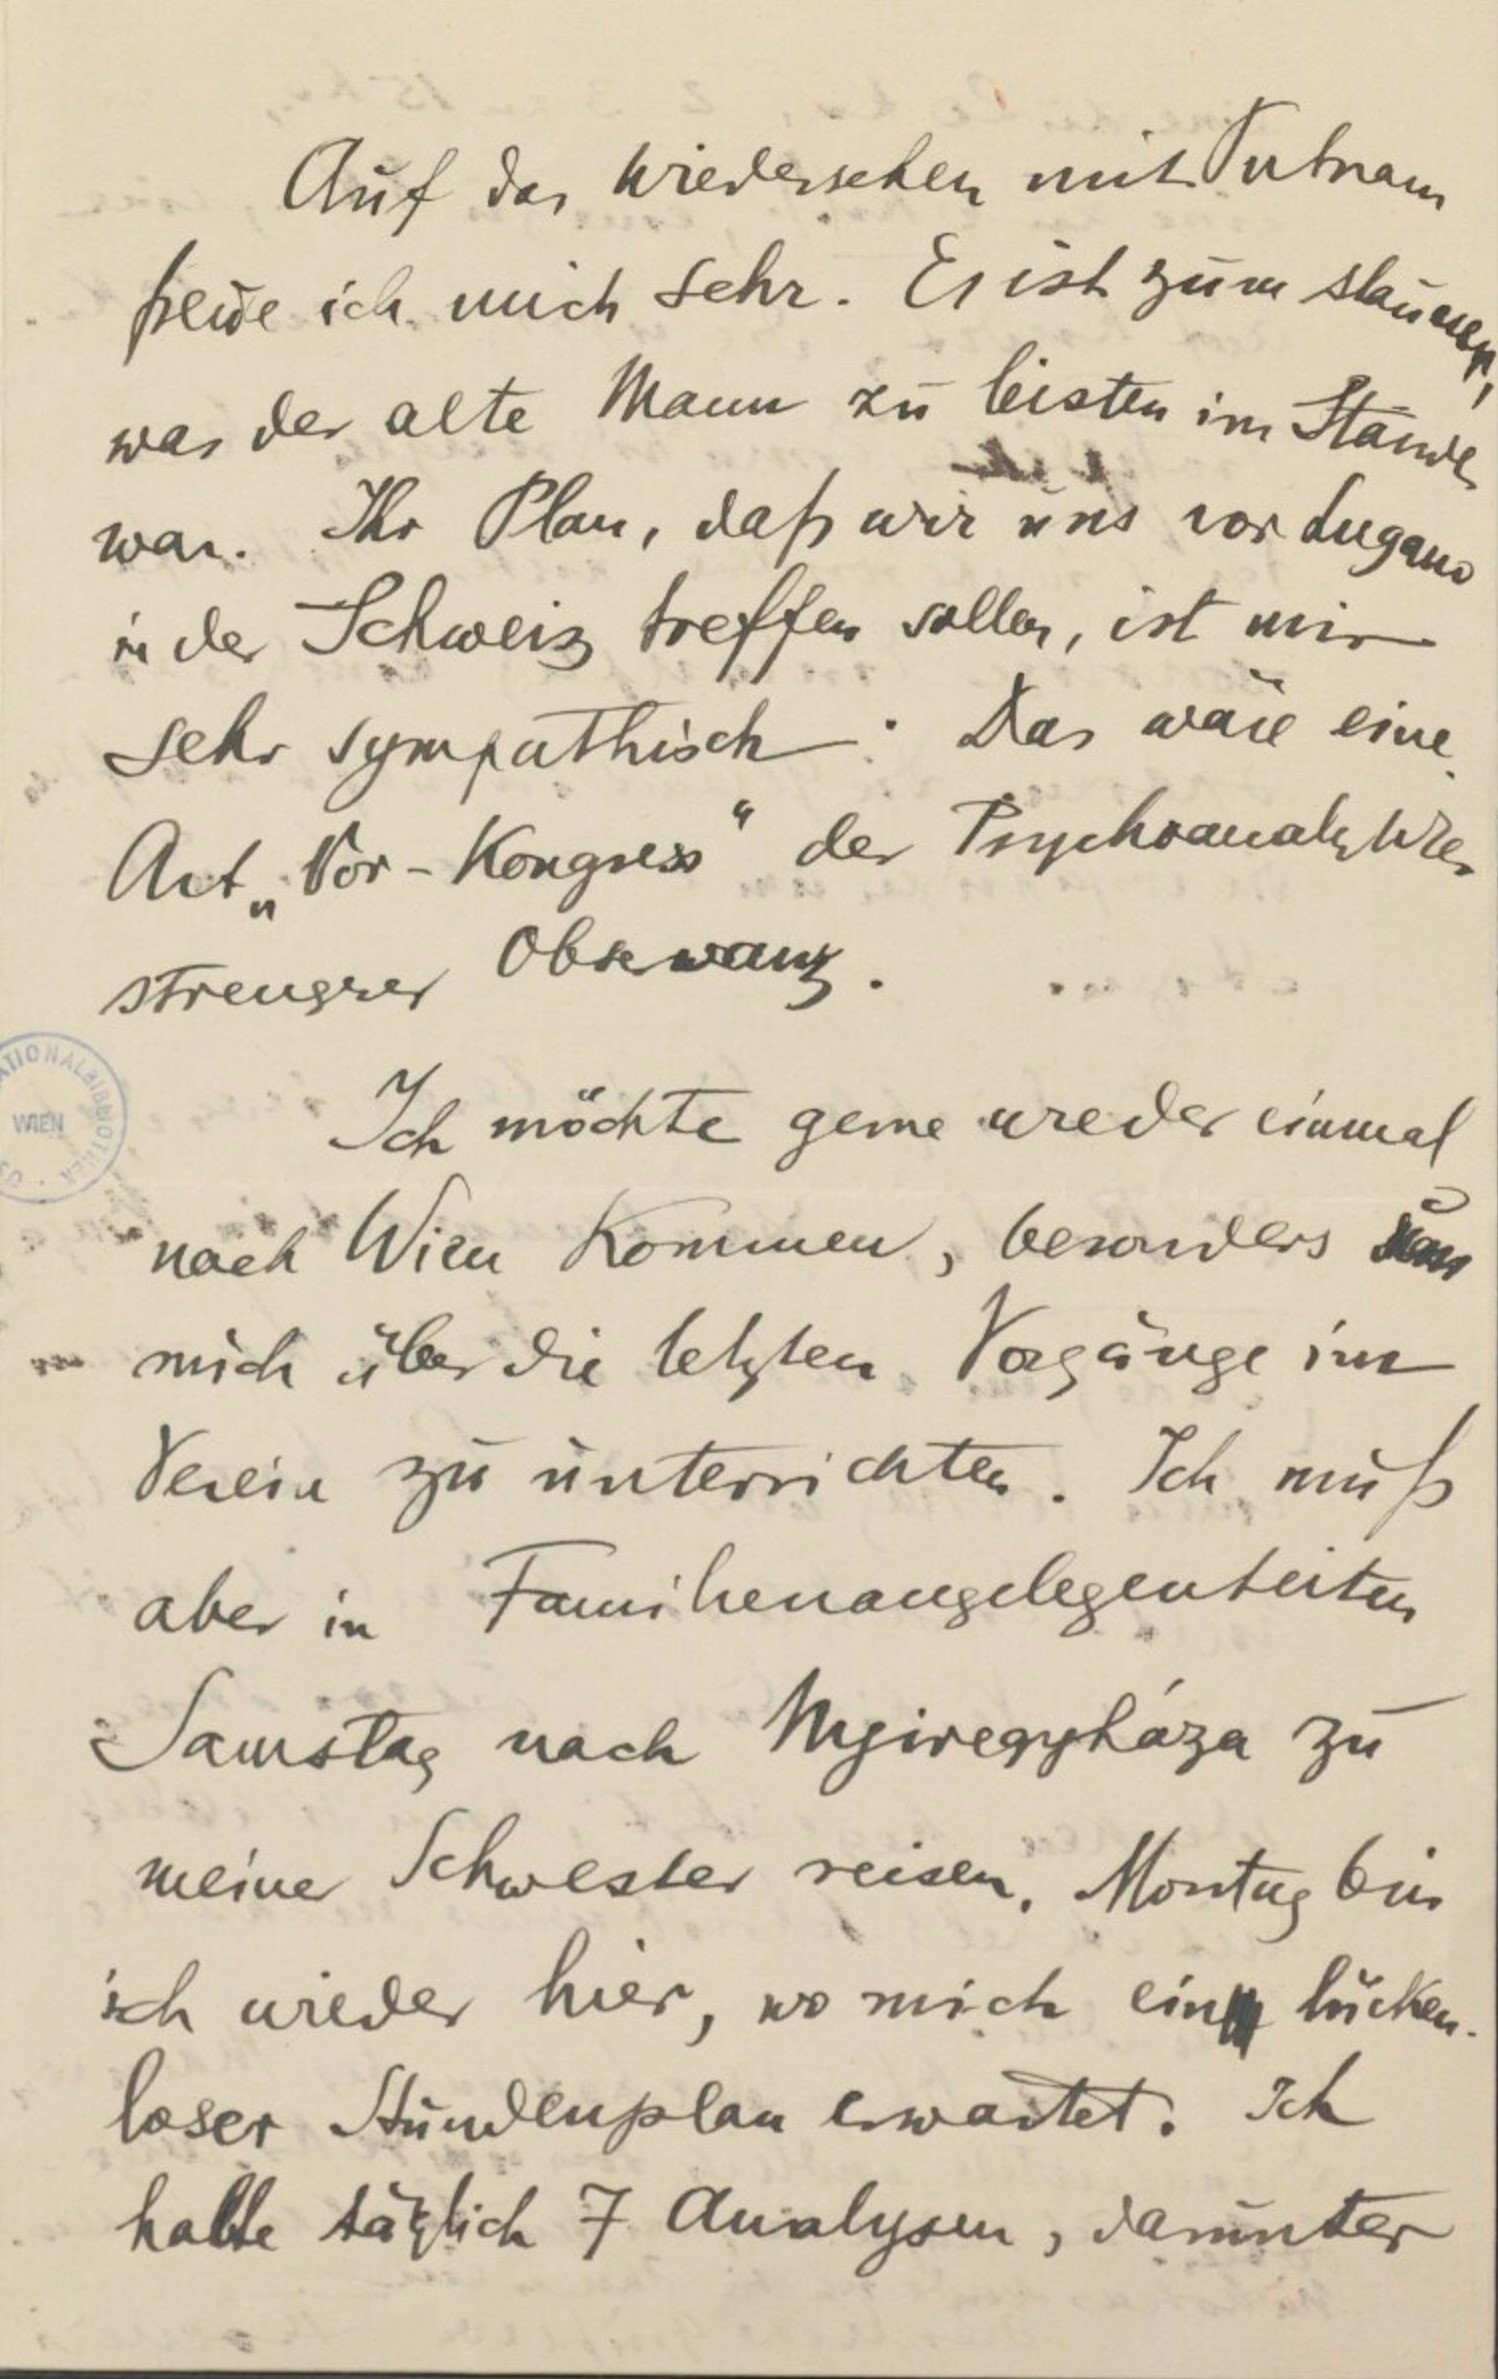 Auf das Wiedersehen mit Putnam
freue ich mich sehr. Es ist zum staunen,
was der alte Mann zu leisten im Stande
war. Ihr Plan, daß wir uns vor Lugano
in der Schweiz treffen sollen, ist mir
sehr sympathisch. Das wäre eine
Art „Vor-Kongress“ der Psychoanalytiker
strengster Observanz.
Ich möchte gerne wieder einmal
nach Wien kommen, besonders um
mich über die letzten Vorgänge im
Verein zu unterrichten. Ich muß
aber in Familienangelegenheiten
Samstag nach Nyiregyháza zu
meiner Schwester reisen. Montag bin
ich wieder hier, wo mich ein lücken-
loser Stundenplan erwartet. Ich
halte täglich 7 Analysen, darunter
WIEN